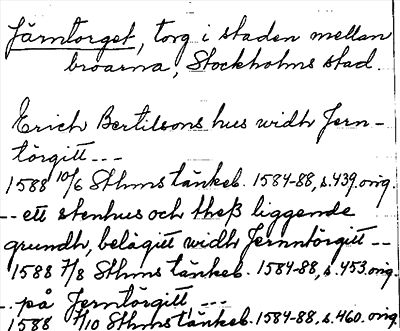 Järntorget, torg i staden mellan
broarna, Stockholms stad.
Erich Bertilsons hus widh Jern-
törgitt---
1588 10/6 Sthms tänkeb. 1584-88, s.439. orig.
-- ett stenhus och theß liggende
grundh, belägitt widh Jernntörgitt --
1588 7/8 Sthms tänkeb. 1584-88, s.453. orig.
-- på Jerntörgitt, ---
1588 7/10 Sthms tänkeb. 1584-88, s.460. orig.